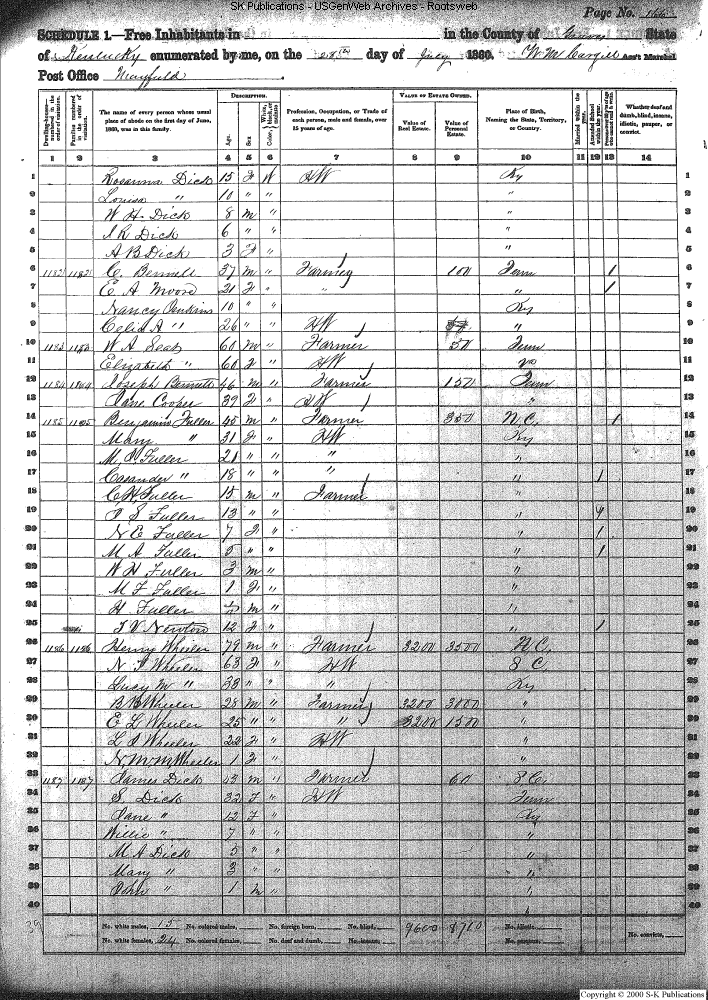 SK Publications - USGenWeb Archives - Rootsweb
Page No. 166
SCHEDULE 1.—Free Inhabitants in in the County of Graves State
of Kentucky enumerated by me, on the 28th day of July 1860. Wm Cargill Ass't Marshal
Post Office Mayfield
DESCRIPTION. VALUE OF ESTATE OWNED.
Dwelling-houses—numbered in the order of visitation. Families numbered in the order of visitation. The name of every person whose usual place of abode on the first day of June, 1860, was in this family. Age. Sex. Color, White, black, or mulatto. Profession, Occupation, or Trade of each person, male and female, over 15 years of age. Value of Real Estate. Value of Personal Estate. Place of Birth, Naming the State, Territory, or Country. Married within the year. Attended School within the year. Whether deaf and dumb, blind, insane, idiotic, pauper, or convict.
1 2 3 4 5 6 7 8 9 10 11 12 13 14
1 Rosanna Dick 15 F W HW Ky 1
2 Louisa " 10 " " " 2
3 W H Dick 8 m " " 3
4 Dick 6 " " " 4
5 A B Dick 3 F " " 5
6 1182 1182 C. Bennett 37 m " Farming 100 Tenn 1 6
7 E A Moore 21 F " " " 1 7
8 Nancy Jenkins 10 " " Ky 8
9 Celia A " 26 " " HW " 9
10 1183 1183 W A Seay 60 m " Farmer 50 Tenn 10
11 Elizabeth " 60 F " HW 11
12 1184 1184 Joseph Bennett 46 m " Farmer 150 Tenn 12
13 Jane Cooper 39 F " HW " 13
14 1185 1185 Benjamin Fuller 45 m " Farmer 350 N.C. 1 14
15 Mary " 31 F " HW Ky 15
16 Fuller 21 " " " " 16
17 Casander " 18 " " " " 1 17
18 C H Fuller 15 m " Farmer " 18
19 Fuller 13 " " " 19
20 N E Fuller 7 F " " 1 20
21 M A Fuller " " " 1 21
22 W H Fuller 3 m " " 22
23 M F Fuller 1 F " " 23
24 H Fuller m " " 24
25 Newton 12 F " " 1 25
26 1186 1186 Henry Wheeler 79 m " Farmer 3200 3500 N.C. 26
27 Wheeler 63 F " HW S C. 27
28 Lucy M " 38 " " " Ky 28
29 B B Wheeler 28 m " Farming 3200 3000 " 29
30 E L Wheeler 25 " " " 3200 1500 " 30
31 Wheeler 22 F " HW " 31
32 Wheeler 1 F " " 32
33 1187 1187 James Dick 43 m " Farmer 60 S.C. 33
34 S. Dick 32 F " HW Tenn 34
35 Jane " 12 F " Ky 35
36 Willie " 7 " " " 36
37 M A Dick 5 " " " 37
38 Mary " 3 " " " 38
39 John " 1 m " " 39
40 40
No. white males, 15 No. colored males, No. foreign born, No. blind, 9600 8760 No. idiotic,
No. white females, 24 No. colored females, No. deaf and dumb, No. insane, No. paupers, No. convicts,
Copyright © 2000 S-K Publications